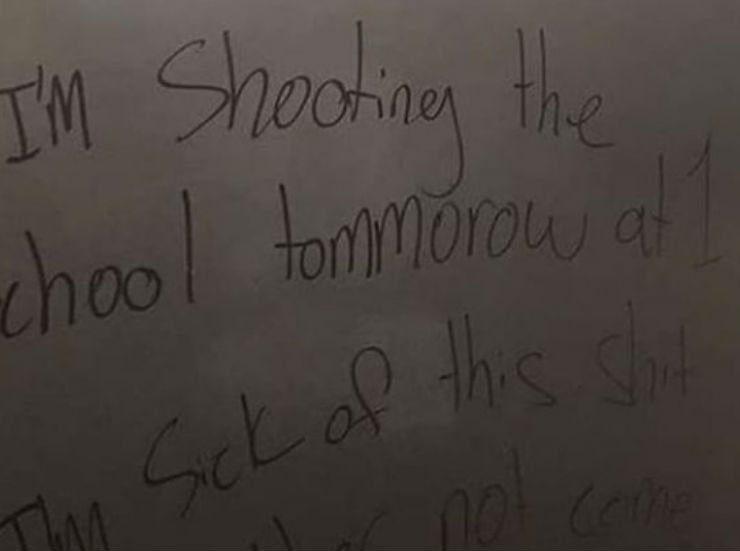 I'M Shooting the
chool tommorow at 1
Sick of this shit
I'm not come